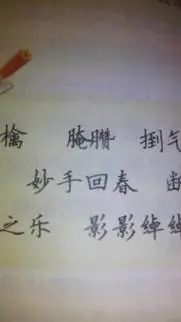 檎 腌臜 捯气
妙手回春
之乐 影影绰绰